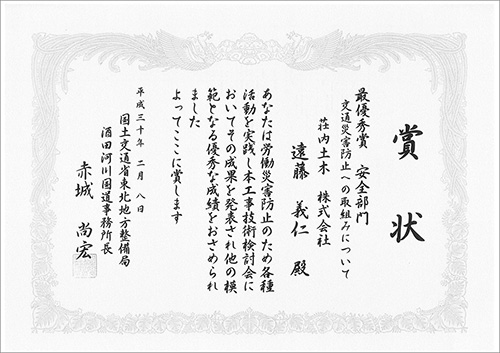 賞状
最優秀賞 安全部門
交通災害防止への取組みについて
荘内土木 株式会社
遠藤 義仁 殿
あなたは労働災害防止のため各種
活動を実践し本工事技術検討会に
おいてその成果を発表され他の模
範となる優秀な成績をおさめられ
ました
よってここに賞します
平成三十年 二月 八日
国土交通省東北地方整備局
酒田河川国道事務所長
赤城 尚宏